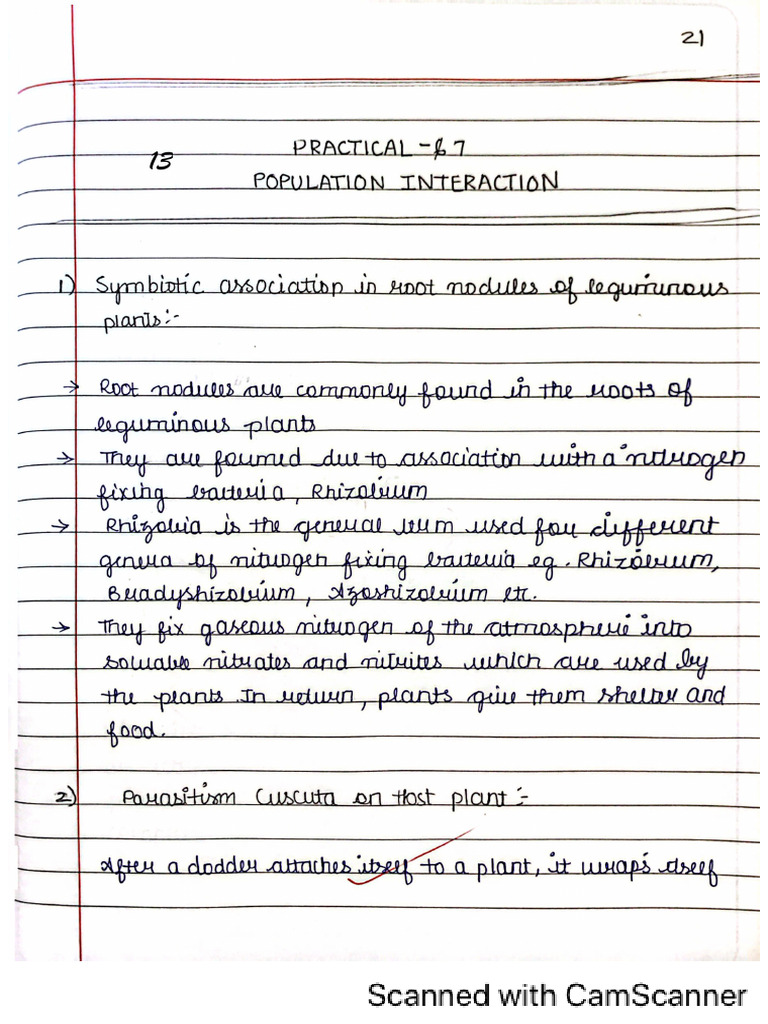 21
13
PRACTICAL - 7
POPULATION INTERACTION
1) Symbiotic association in root nodules of leguminous
plants:-
→ Root nodules are commonly found in the roots of
leguminous plants
→ They are formed due to association with a nitrogen
fixing bacteria, Rhizobium
→ Rhizobia is the general term used for different
genera of nitrogen fixing bacteria eg. Rhizobium,
Bradyrhizobium, Azorhizobium etc.
→ They fix gaseous nitrogen of the atmosphere into
soluable nitrates and nitrites which are used by
the plants. In return, plants give them shelter and
food.
2) Parasitism Cuscuta on Host plant :-
After a dodder attaches itself to a plant, it wraps itself
Scanned with CamScanner